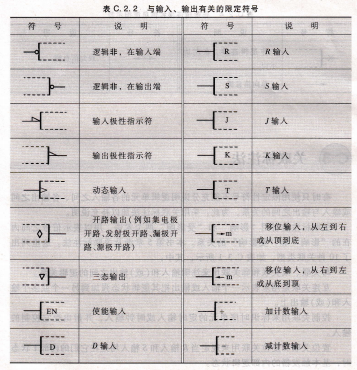 表 C.2.2 与输入、输出有关的限定符号
符 号 说 明 符 号 说 明
逻辑非,在输入端 R R输入
逻辑非,在输出端 S S输入
输入极性指示符 J J输入
输出极性指示符 K K输入
动态输入 T T输入
开路输出(例如集电极
开路、发射极开路、漏极开
路、源极开路)
→m 移位输入,从左到右
或从顶到底
三态输出 ←m 移位输入,从右到左
或从底到顶
EN 使能输入 + 加计数输入
D D输入 − 减计数输入